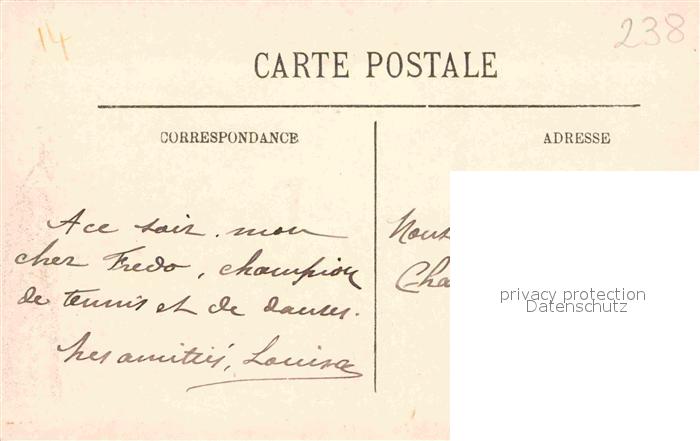 14
238
CARTE POSTALE
CORRESPONDANCE
ADRESSE
A ce soir, mon
cher Fredo, champion
de tennis et de danses.
Mes amitiés, Louise
privacy protection
Datenschutz